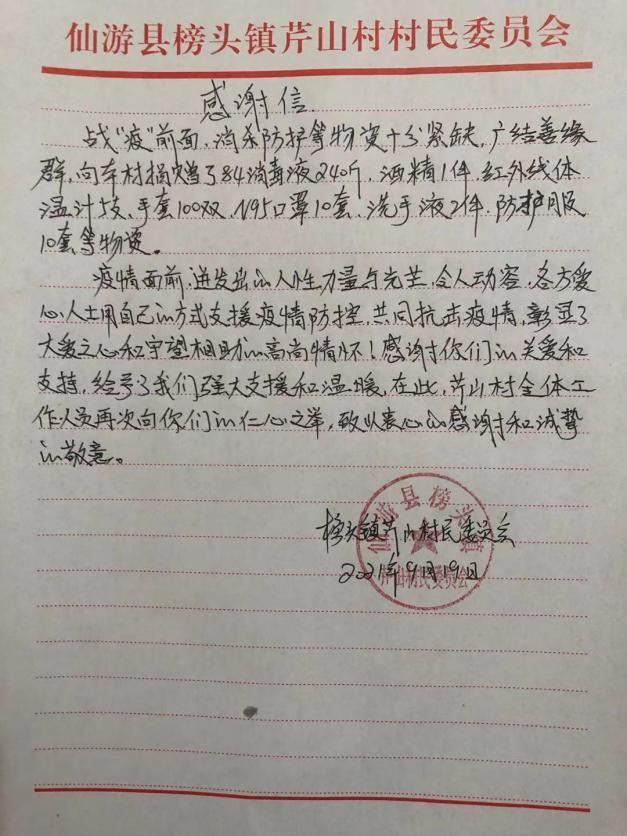 仙游县榜头镇芹山村村民委员会
感谢信
战"疫"前面，消杀防护等物资十分紧缺，广结善缘
群，向本村捐赠了84消毒液240斤，酒精1件，红外线体
温计5支，手套100双，N95口罩10套，洗手液2件，防护服
10套等物资。
疫情面前，迸发出的人性力量与光芒，令人动容，各方爱
心人士用自己的方式支援疫情防控，共同抗击疫情，彰显了
大爱之心和守望相助的高尚情怀！感谢你们的关爱和
支持，给予了我们强大支援和温暖，在此，芹山村全体工
作人员再次向你们的仁心之举，致以衷心的感谢和诚挚
的敬意。
榜头镇芹山村民委员会
2021年9月19日
仙游县榜头镇
芹山村民委员会